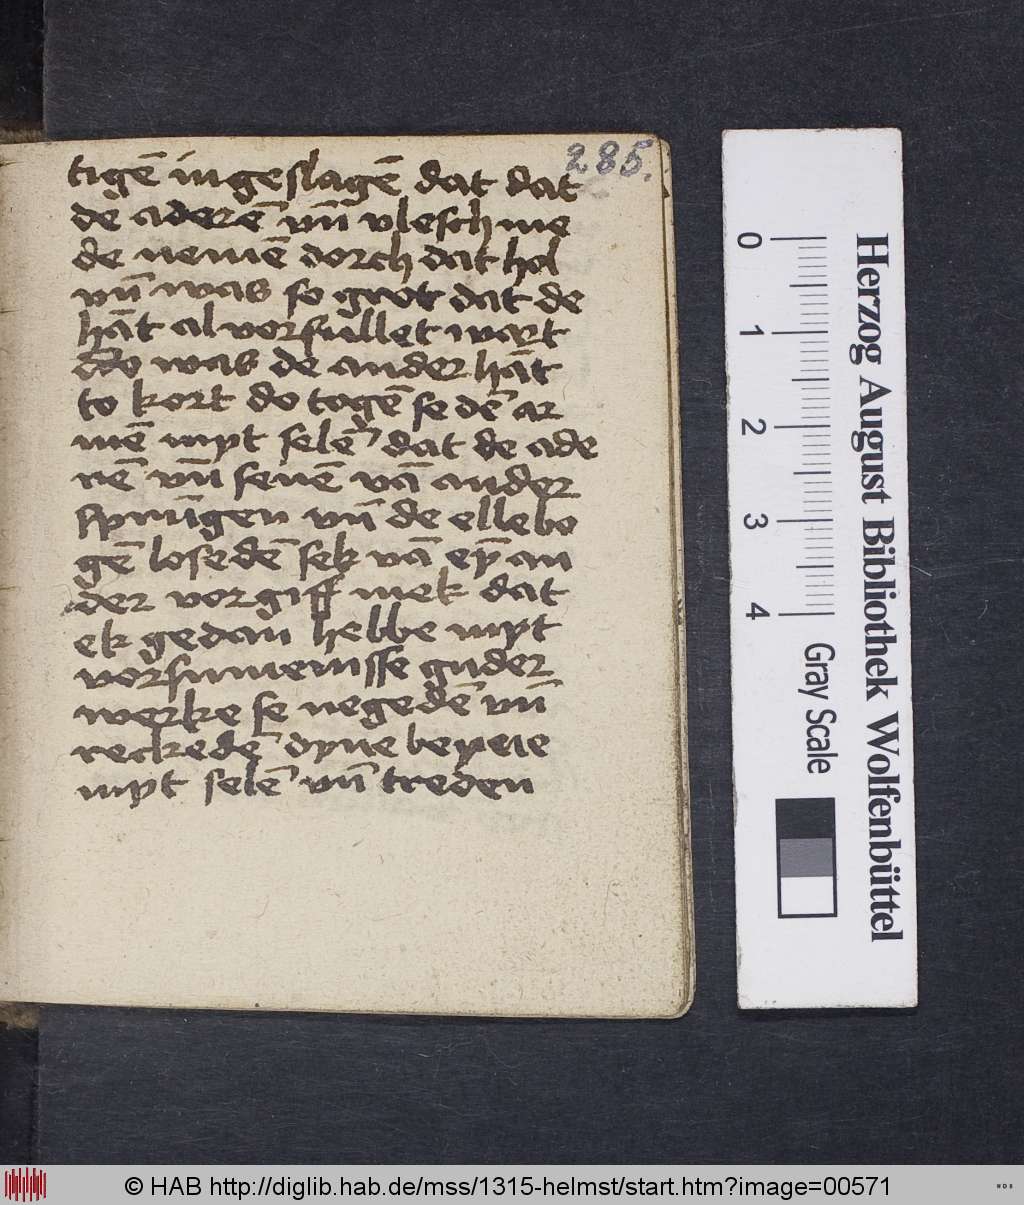 285.
tigē in geslagē dat dat
de aderē vn̄ vlesch me
de nemē dorch dat hol
vn̄ was so grot dat de
hāt al vorfullet wart
do was de ander hāt
to kort do togē se dē ar
mē myt selē dat de ade
rē vn̄ senē vā ander
sprūgen vn̄ de ellebo
gē losedē sek vā eyn̄ an
der vorgiff mek dat
ek gedan hebbe myt
vorsumenisse guder
werke se negedē vn̄
reckedē dyne beyne
myt selē vn̄ treden
Herzog August Bibliothek Wolfenbüttel
0
1
2
3
4
Gray Scale
© HAB http://diglib.hab.de/mss/1315-helmst/start.htm?image=00571